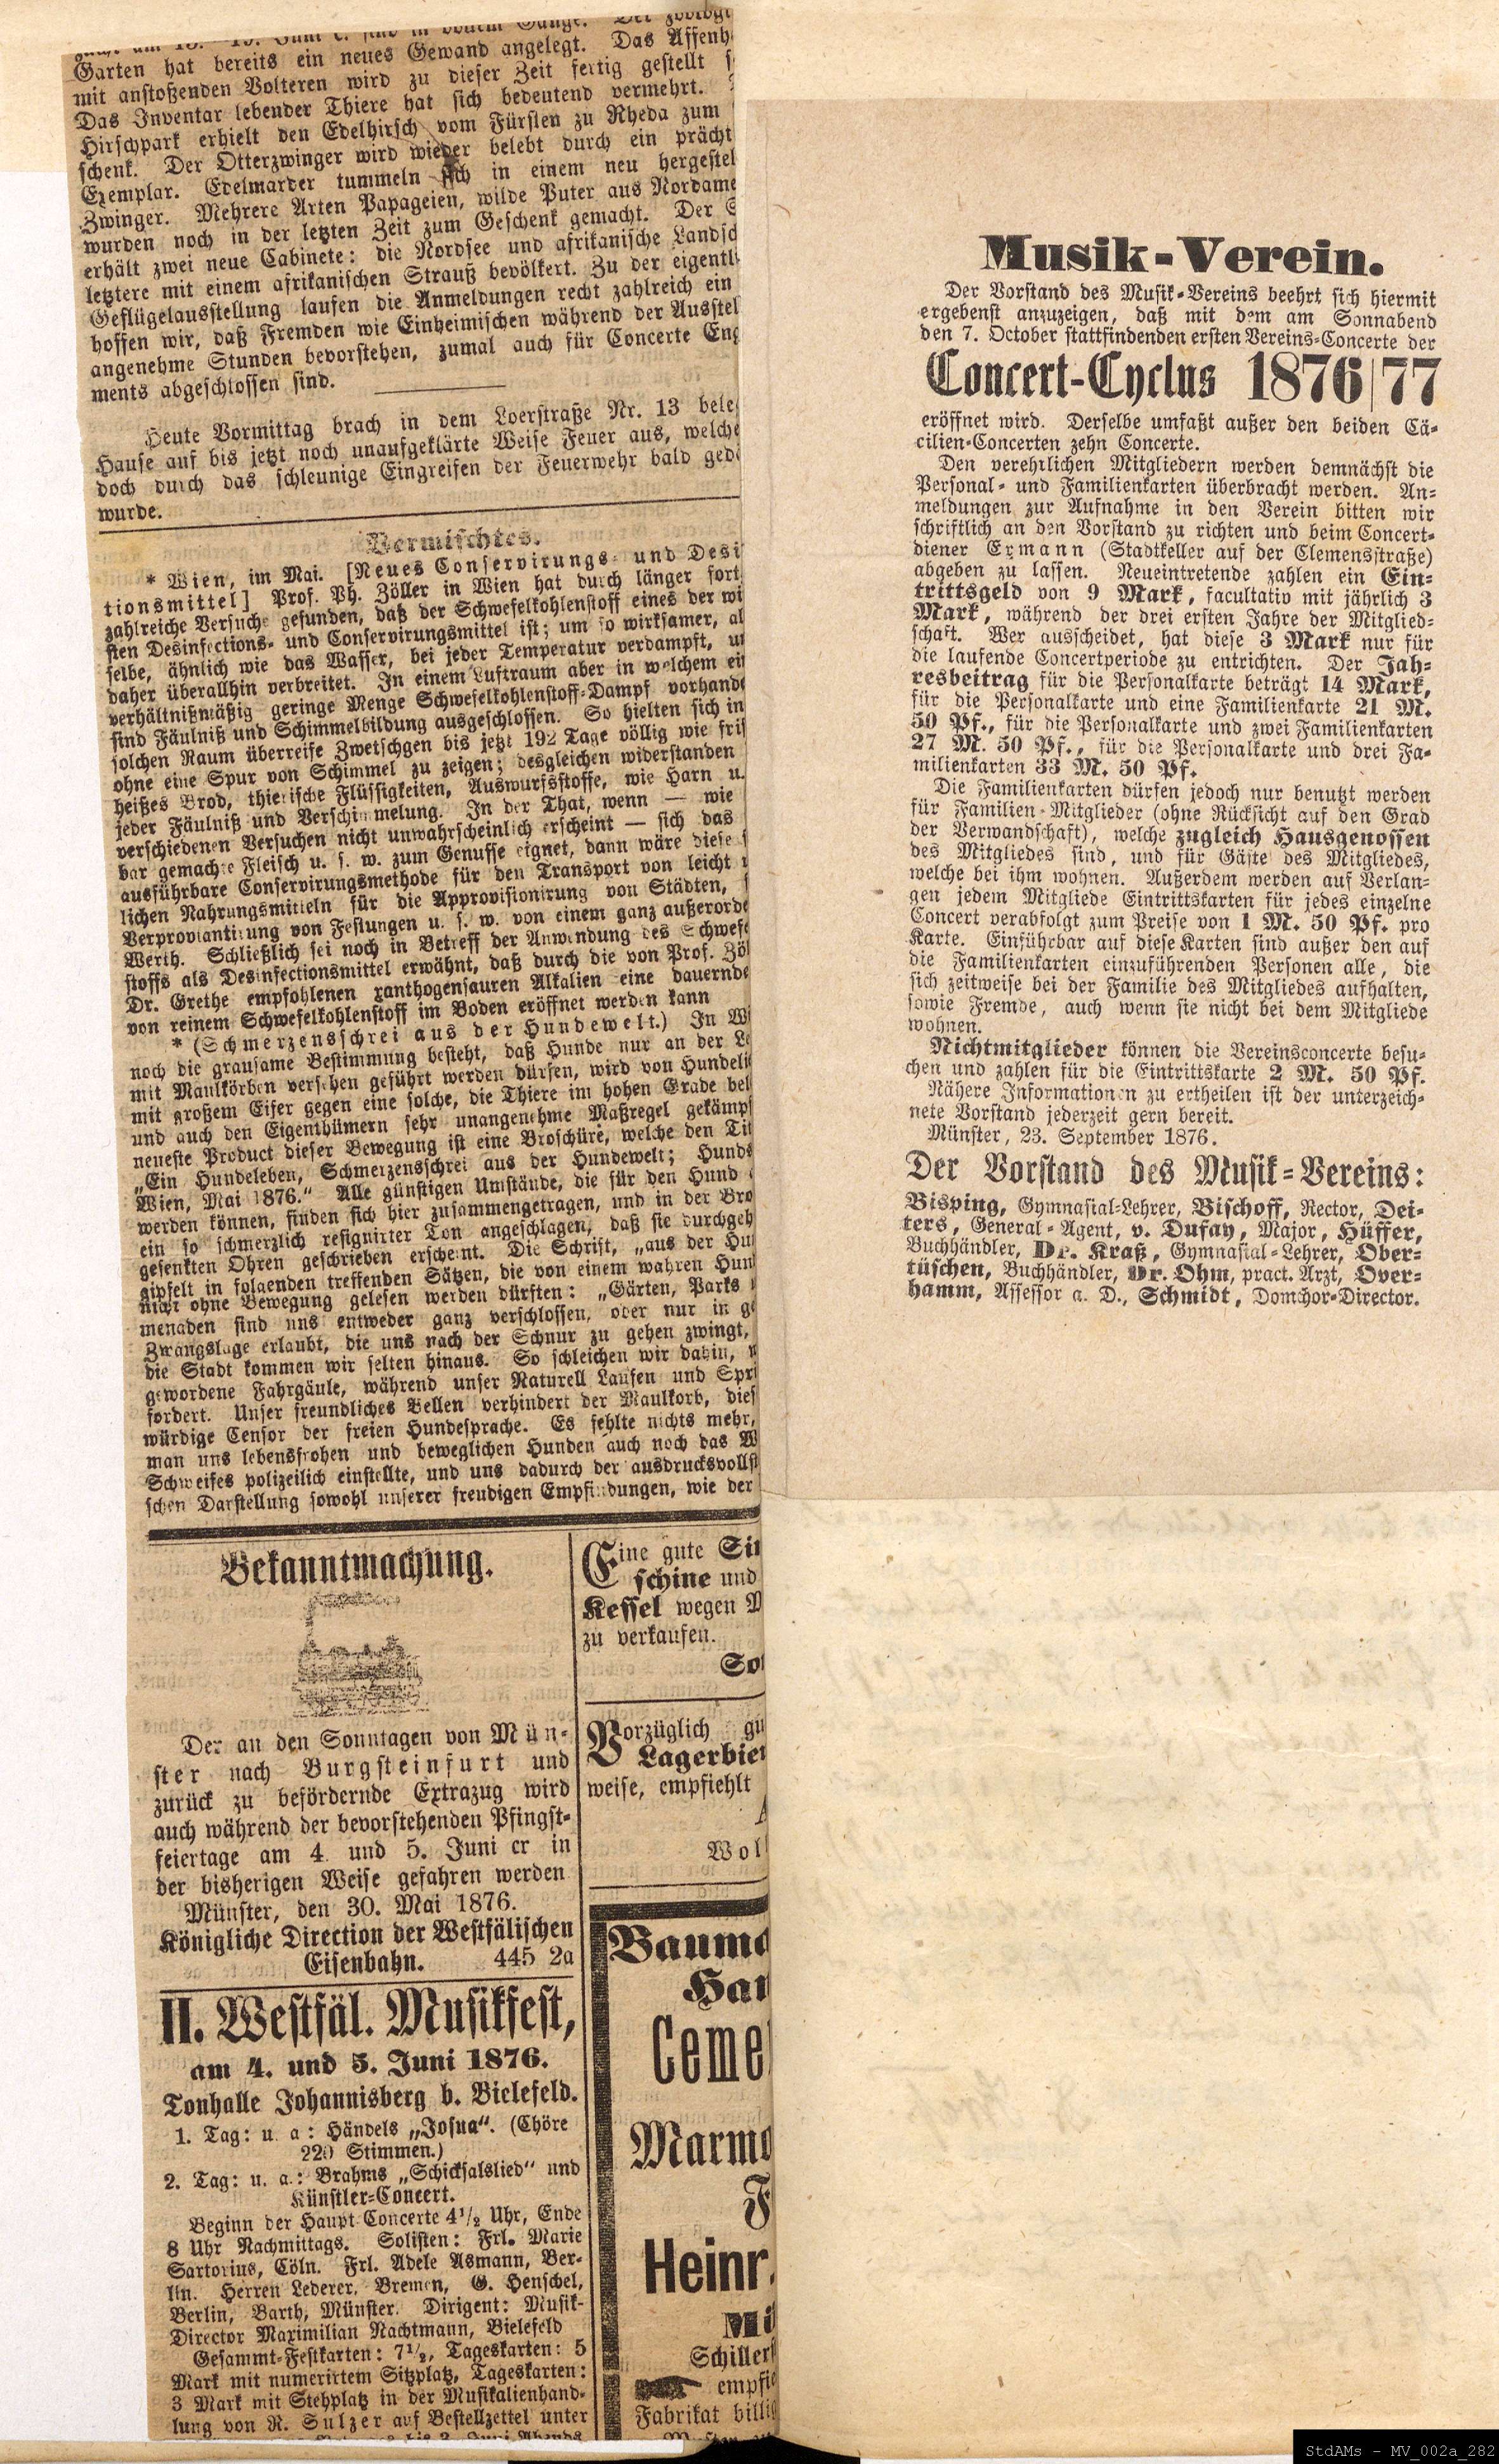 Garten hat bereits ein neues Gewand angelegt. Das Affenh
mit anstoßenden Volieren wird zu dieser Zeit fertig gestellt s
Das Inventar lebender Thiere hat sich bedeutend vermehrt.
Hirschpark erhielt den Edelhirsch vom Fürsten zu Rheda zum
schenk. Der Otterzwinger wird wieder belebt durch ein prächt
Exemplar. Edelmarder tummeln sich in einem neu hergestel
Zwinger. Mehrere Arten Papageien, wilde Puter aus Nordame
wurden noch in der letzten Zeit zum Geschenk gemacht. Der
erhält zwei neue Cabinete: die Nordsee und afrikanische Landsc
letztere mit einem afrikanischen Strauß bevölkert. Zu der eigentli
Geflügelausstellung laufen die Anmeldungen recht zahlreich ein
hoffen wir, daß Fremden wie Einheimischen während der Ausstel
angenehme Stunden bevorstehen, zumal auch für Concerte Eng
ments abgeschlossen sind.
Heute Vormittag brach in dem Loerstraße Nr. 13 bele
Hause auf bis jetzt noch unaufgeklärte Weise Feuer aus, welche
doch durch das schleunige Eingreifen der Feuerwehr bald ged
wurde.
Vermischtes.
* Wien, im Mai. [Neues Conservirungs- und Desi
tionsmittel] Prof. Ph. Zöller in Wien hat durch länger fort
zahlreiche Versuche gefunden, daß der Schwefelkohlenstoff eines der wi
sten Desinfections- und Conservirungsmittel ist; um so wirksamer, al
selbe, ähnlich wie das Wasser, bei jeder Temperatur verdampft, u
daher überallhin verbreitet. In einem Luftraum aber in welchem ei
verhältnißmäßig geringe Menge Schwefelkohlenstoff-Dampf vorhand
sind Fäulniß und Schimmelbildung ausgeschlossen. So hielten sich in
solchen Raum überreife Zwetschgen bis jetzt 192 Tage völlig wie fris
ohne eine Spur von Schimmel zu zeigen; desgleichen widerstanden
heißes Brod, thierische Flüssigkeiten, Auswurfsstoffe, wie Harn u.
jeder Fäulniß und Verschimmelung. In der That, wenn — wie
verschiedenen Versuchen nicht unwahrscheinlich erscheint — sich das
bar gemachte Fleisch u. s. w. zum Genusse eignet, dann wäre diese
ausführbare Conservirungsmethode für den Transport von leicht
lichen Nahrungsmitteln für die Approvisionirung von Städten,
Verproviantirung von Festungen u. s. w. von einem ganz außerorde
Werth. Schließlich sei noch in Betreff der Anwendung des Schwefe
stoffs als Desinfectionsmittel erwähnt, daß durch die von Prof. Zöl
Dr. Grethe empfohlenen xanthogensauren Alkalien eine dauernde
von reinem Schwefelkohlenstoff im Boden eröffnet werden kann
* (Schmerzensschrei aus der Hundewelt.) In Wi
noch die grausame Bestimmung besteht, daß Hunde nur an der Le
mit Maulkörben versehen geführt werden dürfen, wird von Hundeli
mit großem Eifer gegen eine solche, die Thiere im hohen Grade bel
und auch den Eigenthümern sehr unangenehme Maßregel gekämpf
neueste Product dieser Bewegung ist eine Broschüre, welche den Tit
„Ein Hundeleben, Schmerzensschrei aus der Hundewelt; Hunds
Wien, Mai 1876.“ Alle günstigen Umstände, die für den Hund
werden können, finden sich hier zusammengetragen, und in der Bro
ein so schmerzlich resignirter Ton angeschlagen, daß sie durchgeh
gesenkten Ohren geschrieben erscheint. Die Schrift, „aus der Hu
gipfelt in folgenden treffenden Sätzen, die von einem wahren Hun
nicht ohne Bewegung gelesen werden dürften: „Gärten, Parks
menaden sind uns entweder ganz verschlossen, oder nur in ge
Zwangslage erlaubt, die uns nach der Schnur zu gehen zwingt,
die Stadt kommen wir selten hinaus. So schleichen wir dahin,
gewordene Fahrgäule, während unser Naturell Laufen und Spri
fordert. Unser freundliches Bellen verhindert der Maulkorb, dies
würdige Censor der freien Hundesprache. Es fehlte nichts mehr,
man uns lebensfrohen und beweglichen Hunden auch noch das W
Schweifes polizeilich einstellte, und uns dadurch der ausdrucksvollst
schen Darstellung sowohl unserer freudigen Empfindungen, wie der
Bekanntmachung.
Der an den Sonntagen von Mün-
ster nach Burgsteinfurt und
zurück zu befördernde Extrazug wird
auch während der bevorstehenden Pfingst-
feiertage am 4. und 5. Juni cr in
der bisherigen Weise gefahren werden
Münster, den 30. Mai 1876.
Königliche Direction der Westfälischen
Eisenbahn. 445 2a
II. Westfäl. Musikfest,
am 4. und 5. Juni 1876.
Tonhalle Johannisberg b. Bielefeld.
1. Tag: u. a: Händels „Josua“. (Chöre
220 Stimmen.)
2. Tag: u. a.: Brahms „Schicksalslied“ und
Künstler-Concert.
Beginn der Haupt-Concerte 4½ Uhr, Ende
8 Uhr Nachmittags. Solisten: Frl. Marie
Sartorius, Cöln. Frl. Adele Asmann, Ber-
lin. Herren Lederer, Bremen, G. Henschel,
Berlin, Barth, Münster. Dirigent: Musik-
Director Maximilian Nachtmann, Bielefeld
Gesammt-Festkarten: 7½, Tageskarten: 5
Mark mit numerirtem Sitzplatz, Tageskarten:
3 Mark mit Stehplatz in der Musikalienhand-
lung von R. Sulzer auf Bestellzettel unter
Eine gute
schine und
Kessel wegen
zu verkaufen.
So
Vorzüglich gu
Lagerbier
weise, empfiehlt
Wol
Baumo
Han
Ceme
Marmo
F
Heinr.
Mü
Schillers
empfie
Fabrikat billig
Musik-Verein.
Der Vorstand des Musik-Vereins beehrt sich hiermit
ergebenst anzuzeigen, daß mit dem am Sonnabend
den 7. October stattfindenden ersten Vereins-Concerte der
Concert-Cyclus 1876/77
eröffnet wird. Derselbe umfaßt außer den beiden Cä-
cilien-Concerten zehn Concerte.
Den verehrlichen Mitgliedern werden demnächst die
Personal- und Familienkarten überbracht werden. An-
meldungen zur Aufnahme in den Verein bitten wir
schriftlich an den Vorstand zu richten und beim Concert-
diener Ermann (Stadtkeller auf der Clemensstraße)
abgeben zu lassen. Neueintretende zahlen ein Ein-
trittsgeld von 9 Mark, facultativ mit jährlich 3
Mark, während der drei ersten Jahre der Mitglied-
schaft. Wer ausscheidet, hat diese 3 Mark nur für
die laufende Concertperiode zu entrichten. Der Jah-
resbeitrag für die Personalkarte beträgt 14 Mark,
für die Personalkarte und eine Familienkarte 21 M.
50 Pf., für die Personalkarte und zwei Familienkarten
27 M. 50 Pf., für die Personalkarte und drei Fa-
milienkarten 33 M. 50 Pf.
Die Familienkarten dürfen jedoch nur benutzt werden
für Familien-Mitglieder (ohne Rücksicht auf den Grad
der Verwandschaft), welche zugleich Hausgenossen
des Mitgliedes sind, und für Gäste des Mitgliedes,
welche bei ihm wohnen. Außerdem werden auf Verlan-
gen jedem Mitgliede Eintrittskarten für jedes einzelne
Concert verabfolgt zum Preise von 1 M. 50 Pf. pro
Karte. Einführbar auf diese Karten sind außer den auf
die Familienkarten einzuführenden Personen alle, die
sich zeitweise bei der Familie des Mitgliedes aufhalten,
sowie Fremde, auch wenn sie nicht bei dem Mitgliede
wohnen.
Nichtmitglieder können die Vereinsconcerte besu-
chen und zahlen für die Eintrittskarte 2 M. 50 Pf.
Nähere Informationen zu ertheilen ist der unterzeich-
nete Vorstand jederzeit gern bereit.
Münster, 23. September 1876.
Der Vorstand des Musik-Vereins:
Bisping, Gymnasial-Lehrer, Bischoff, Rector, Dei-
ters, General-Agent, v. Dufay, Major, Hüffer,
Buchhändler, Dr. Kraß, Gymnasial-Lehrer, Ober-
tüschen, Buchhändler, Dr. Ohm, pract. Arzt, Over-
hamm, Assessor a. D., Schmidt, Domchor-Director.
StdAMs - MV_002a_282